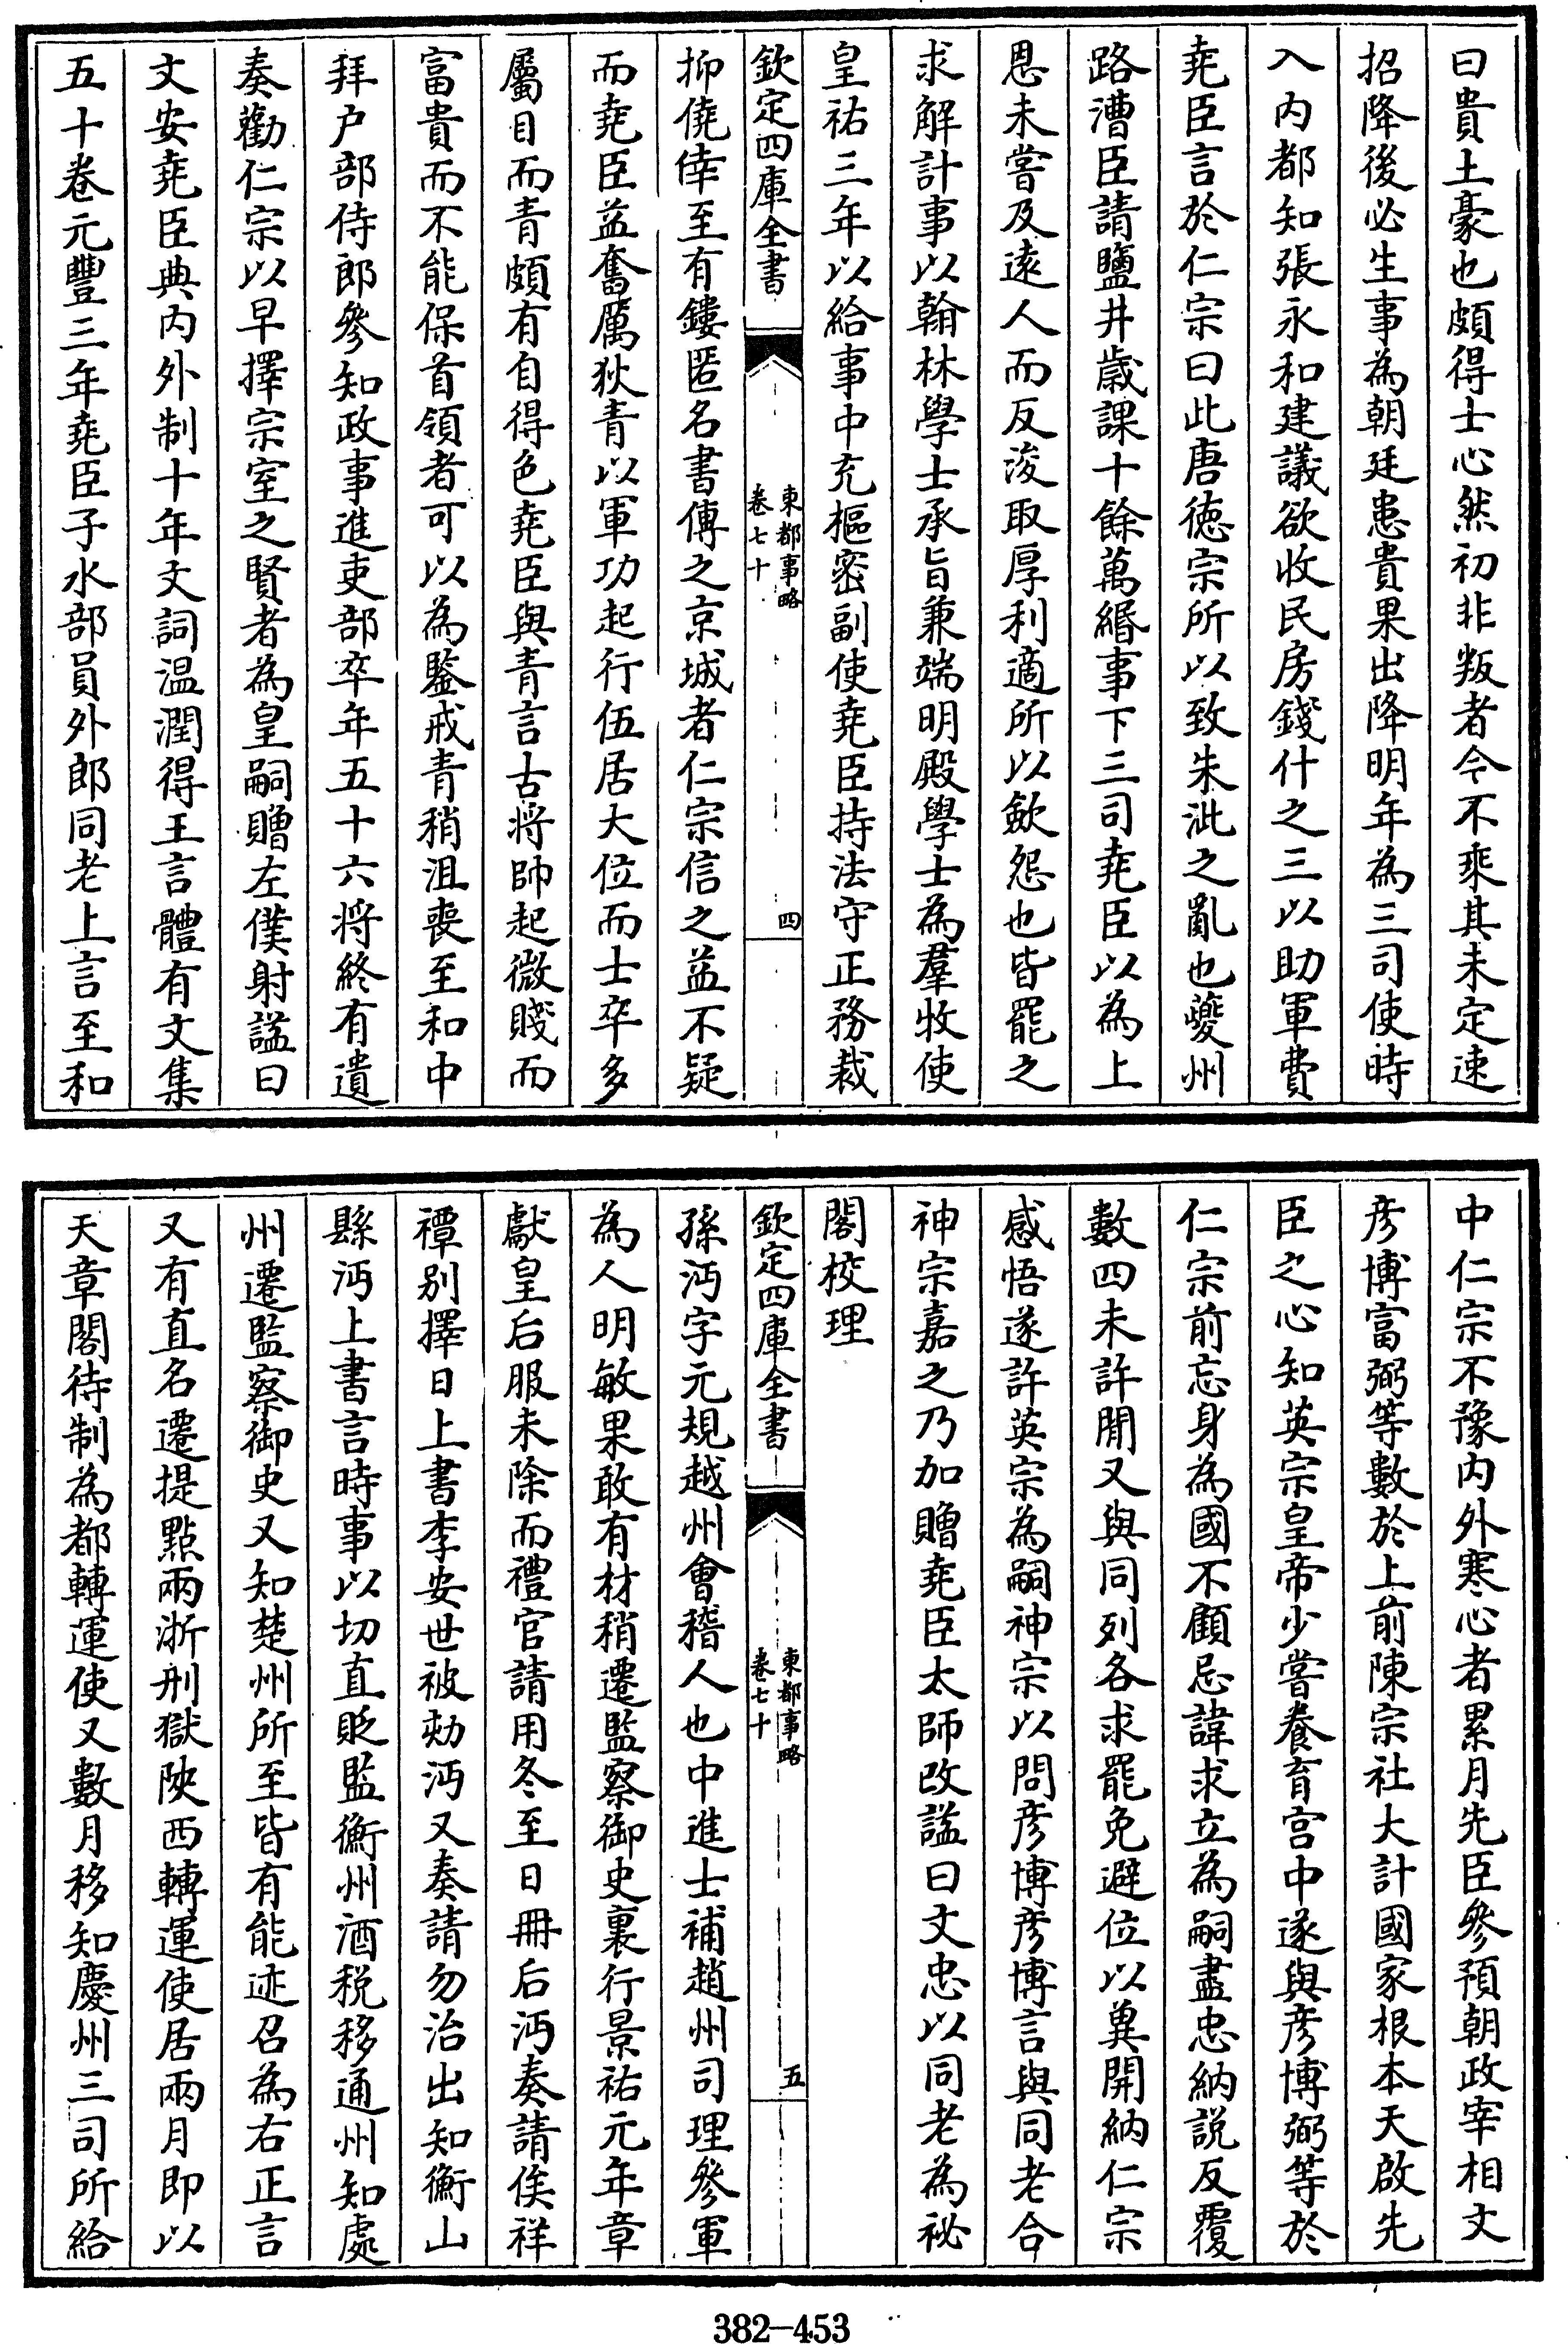 曰貴土豪也頗得士心然初非叛者今不乘其未定速
招降後必生事為朝廷患貴果出降明年為三司使時
入内都知張永和建議欲收民房錢什之三以助軍費
堯臣言於仁宗曰此唐徳宗所以致朱泚之亂也夔州
路漕臣請鹽井歲課十餘萬緡事下三司堯臣以為上
恩未嘗及逺人而反浚取厚利適所以斂怨也皆罷之
求解計事以翰林學士承旨兼端明殿學士為羣牧使
皇祐三年以給事中充樞密副使堯臣持法守正務裁
欽定四庫全書
東都事略
卷七十
四
抑僥倖至有鏤匿名書傳之京城者仁宗信之益不疑
而堯臣益奮厲狄青以軍功起行伍居大位而士卒多
屬目而青頗有自得色堯臣與青言古將帥起微賤而
富貴而不能保首領者可以為鑒戒青稍沮喪至和中
拜户部侍郎參知政事進吏部卒年五十六將終有遺
奏勸仁宗以早擇宗室之賢者為皇嗣贈左僕射諡曰
文安堯臣典内外制十年文詞温潤得王言體有文集
五十卷元豐三年堯臣子水部員外郎同老上言至和
中仁宗不豫内外寒心者累月先臣參預朝政宰相文
彦博富弼等數於上前陳宗社大計國家根本天啟先
臣之心知英宗皇帝少嘗養育宫中遂與彦博弼等於
仁宗前忘身為國不顧忌諱求立為嗣盡忠納説反覆
數四未許閒又與同列各求罷免避位以冀開納仁宗
感悟遂許英宗為嗣神宗以問彦博彦博言與同老合
神宗嘉之乃加贈堯臣太師改諡曰文忠以同老為祕
閣校理
欽定四庫全書
東都事略
卷七十
五
孫沔字元規越州會稽人也中進士補趙州司理參軍
為人明敏果敢有材稍遷監察御史裏行景祐元年章
獻皇后服未除而禮官請用冬至日冊后沔奏請俟祥
禫别擇日上書李安世被劾沔又奏請勿治出知衡山
縣沔上書言時事以切直貶監衡州酒税移通州知處
州遷監察御史又知楚州所至皆有能迹召為右正言
又有直名遷提點兩浙刑獄陜西轉運使居兩月即以
天章閣待制為都轉運使又數月移知慶州三司所給
382-453